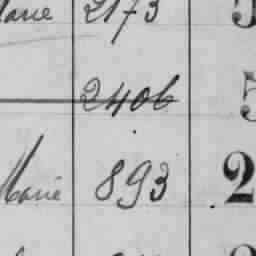 Marie 2173 5
2406 5
Marie 893 2